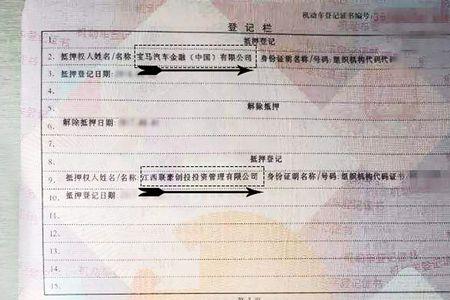 机动车登记证书编号:
登记栏
1. 抵押登记
2. 抵押权人姓名/名称:宝马汽车金融(中国)有限公司 身份证明名称/号码:组织机构代码
3. 抵押登记日期:
4.
5. 解除抵押
6. 解除抵押日期:
7.
8. 抵押登记
9. 抵押权人姓名/名称:江西联豪创投投资管理有限公司 身份证明名称/号码:组织机构代码证书
10. 抵押登记日期:
11.
12.
13.
14.
15.